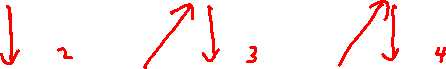 ↓ 2 ↗↓ 3 ↗↓ 4